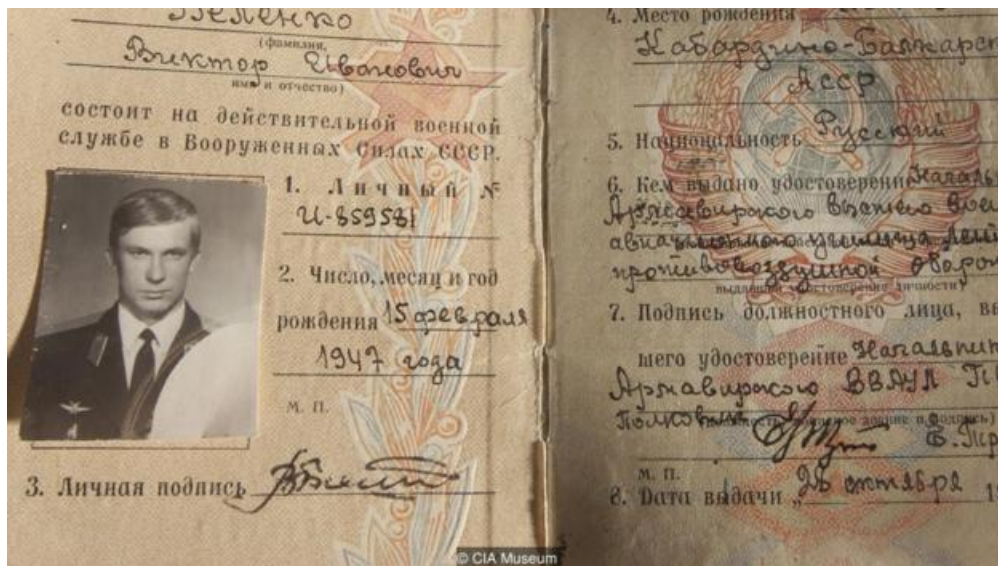 Беленко
(фамилия,
Виктор Иванович
имя и отчество)
состоит на действительной военной
службе в Вооруженных Силах СССР.
1. Личный №
И-859581
2. Число, месяц и год
рождения 15 февраля
1947 года
М. П.
3. Личная подпись
4. Место рождения
Кабардино-Балкарс
АССР
5. Национальность Русский
6. Кем выдано удостоверение Началь
Армавирского Высшего Вое
авиа училища
противовоздушной оборон
выдавшей удостоверение личности)
7. Подпись должностного лица, вы
шего удостоверение Начальник
Армавирского ВВАУЛ
Полковник звание и подпись)
М. П.
8. Дата выдачи „ 28 октября 1
© CIA Museum